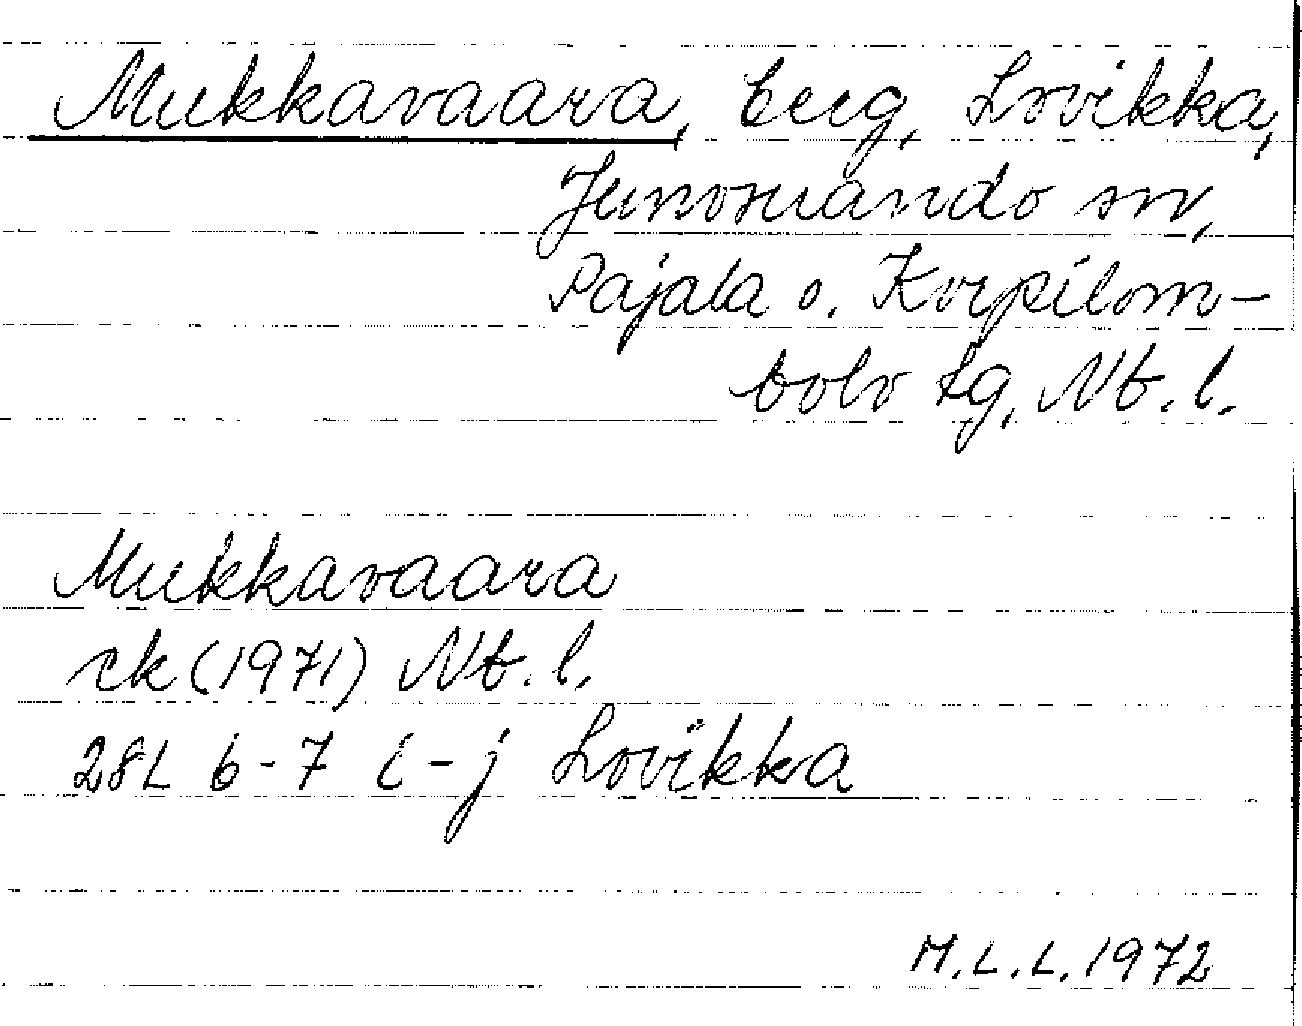 Mukkavaara, berg, Lovikka,
Junosuando sn,
Pajala o. Korpilom-
bolo tg, Nb. l.
Mukkavaara
ek (1971) Nb. l.
28L 6-7 i-j Lovikka
M.L.L. 1972